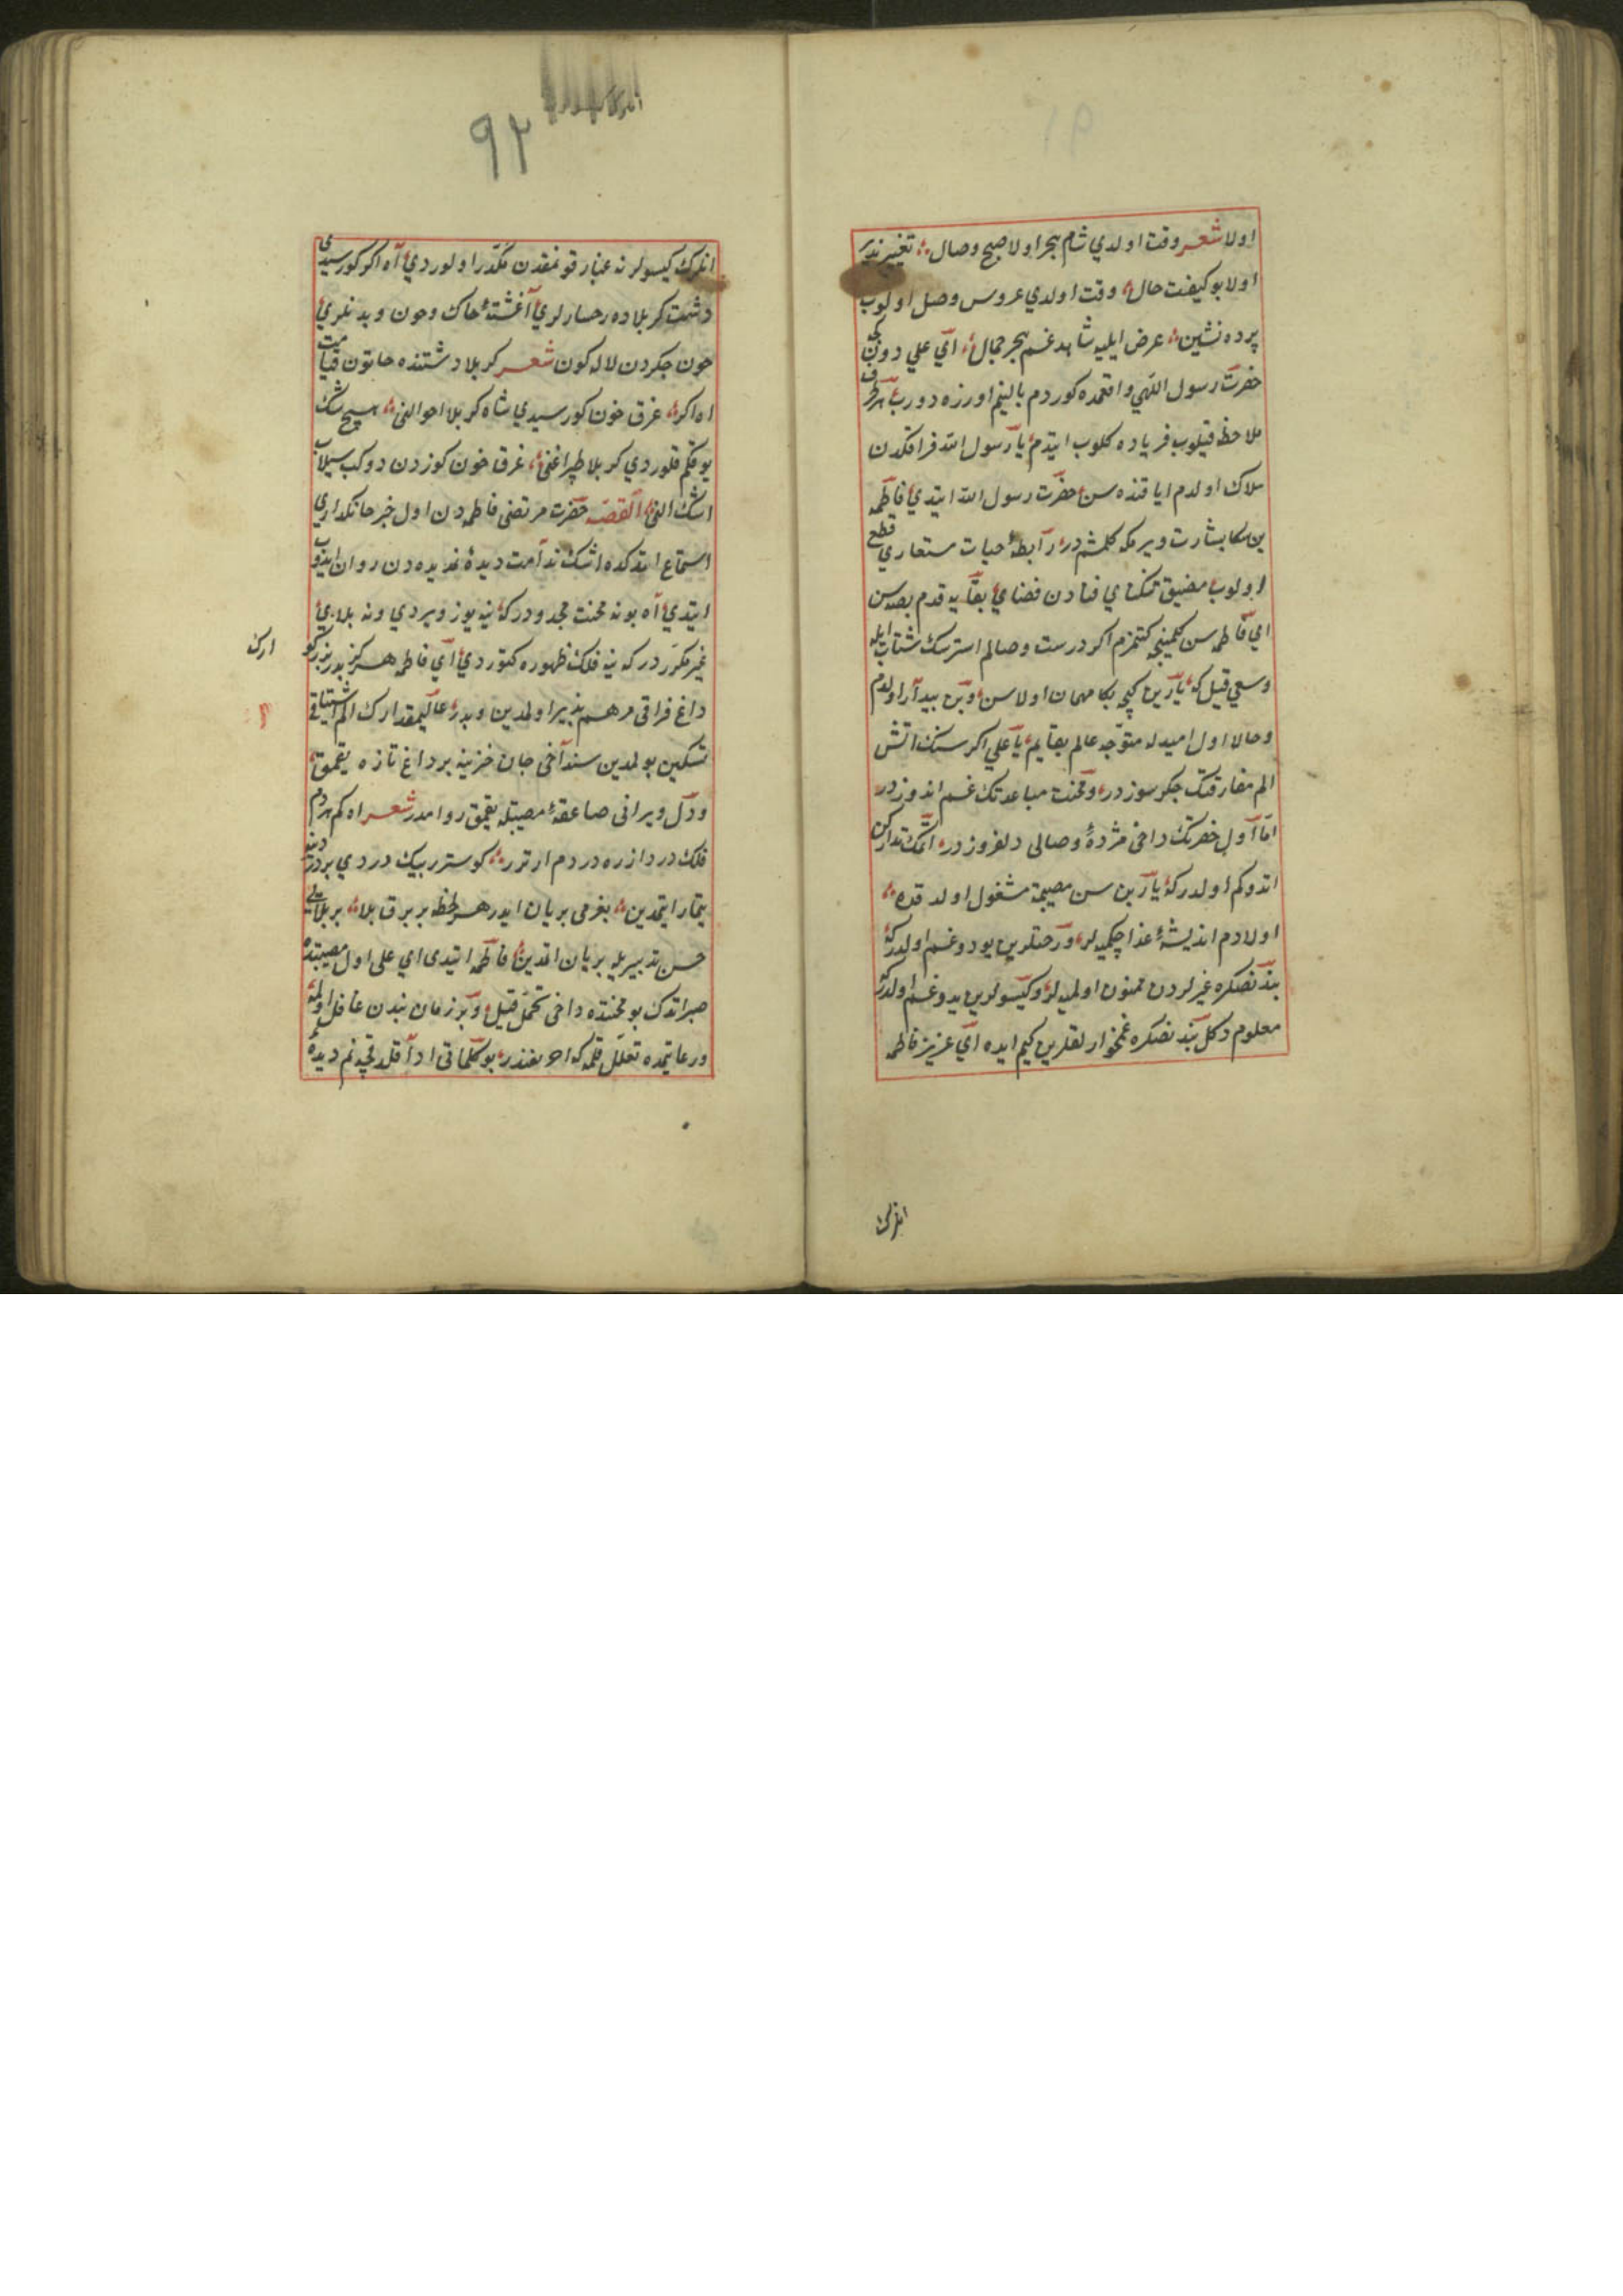 اولا شعر وقت اولدي شام هجر اولا صبح وصال تغيير پذير
اولا بو كيفيت حال وقت اولدي عروس وصل اولوب
پرده نشين عرض ايليه شاهد غم هجر جمال اي علي دون كجه
حضرت رسول اللهي واقعمده كوردم بالينم اوزره دورب هر طرف
ملاحظه قيلوب فرياده كلوب ايتدم يا رسول الله فراقكدن
هلاك اولدم ايا قنده سن حضرت رسول الله ايتدي اي فاطمه
بن سكا بشارت ويرمكه كلمشم در رابطۀ حيات مستعاري قطع
اولوب مضيق تنكناي فنادن فضاي بقايه قدم بصه سن
اي فاطمه سن كلمينجه كتمزم اكر درست وصالم استرسك شتاب ايله
وسعي قيل كه يارين كيجه بكا مهمان اولاسن وبن بيدار اولدم
وحالا اول اميدله متوجه عالم بقايم يا علي اكر سنك اتش
الم مفارقتك جكر سوزدر ومحنت مباعدتك غم اندوزدر
اما اول حضرتك داخي مژدۀ وصالي دلفروزدر اتمك تدارك
اتدوكم اولدركه يارين سن مصيبتمه مشغول اولدقده
اولادم انديشۀ غذا چكميه لر ورختلرين يودوغم اولدركه
بندنصكره غيرلردن ممنون اولميه لر وكيسولرين يدوغم اولدركه
معلوم دكل بندنصكره غمخوارلقلرين كيم ايده اي عزيز فاطمه
انلرك
٩٢
انلرك كيسولرنه غبار قونمقدن مكدر اولوردي آه اكر كورسيدي
دشت كربلاده رخسارلري آغشتۀ خاك وخون وبدنلري
خون جكردن لاله كون شعر كربلا دشتنده خاتون قيامت
اه اكر غرق خون كورسيدي شاه كربلا احوالني هيچ شك
يوقكم قلوردي كربلا طپراغني غرق خون كوزدن دوكب سيلاب
اشك النى القصه حضرت مرتضى فاطمه دن اول خبر جانكدازي
استماع ايتدكده اشك ندامت ديدۀ غمديده دن روان ايدوب
ايتدي آه بو نه محنت مجدددركه ينه يوز ويردي ونه بلاي
غير مكرردركه ينه فلك ظهوره كتوردي اي فاطمه هركز پدر بزركو
ارك
داغ فراقى مرهم پذير اولمدين وپدر عاليمقدارك الم اشتياقى
تسكين بولمدين سنداخى جان حزينه بر داغ تازه يقمق
ودل ويراني صاعقۀ مصيبتله يقمق روامدر شعر اه كم هر دم
فلك دردازره دردم ارترر كوسترر بيك دردي بر دردنه
تيمار ايتمدين بغرمى بريان ايدر هر لحظه بر برق بلا بر بلايى
حسن تدبيريله بريان اتمدين فاطمه ايتدى اي على اول مصيبتده
صبر اتدك بو محنتده داخى تحمل قيل وبر زمان بندن غافل اولمه
ورعايتمده تعلل قلمه كه اخر نفسدر بو كلماتى ادا قلدقچه نم ديدۀ